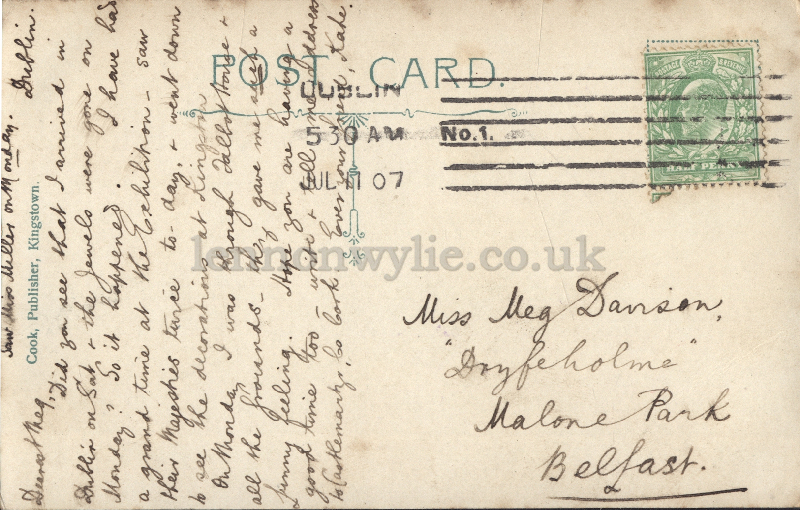 POST CARD.
DUBLIN
5 30 AM
No. 1.
JUL 11 07
HALF PENNY
Cook, Publisher, Kingstown.
lennonwylie.co.uk
Miss Meg Davison,
"Dryfeholme"
Malone Park
Belfast.
Saw Miss Miller on Monday. Dublin.
Dearest Meg,
Did you see that I arrived in
Dublin on Sat & the Jewels were gone on
Monday? So it happened. I have had
a grand time at the Exhibition - saw
their Majesties twice to-day, & went down
to see the decorations at Kingston
On Monday I was through Talbot House &
all the grounds - they gave me such a
funny feeling. Hope you are having a
good time too - write & tell me address
to Castlemartyr, Co Cork Ever your friend, Kate.